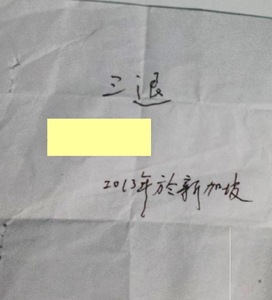 三退
2013年於新加坡